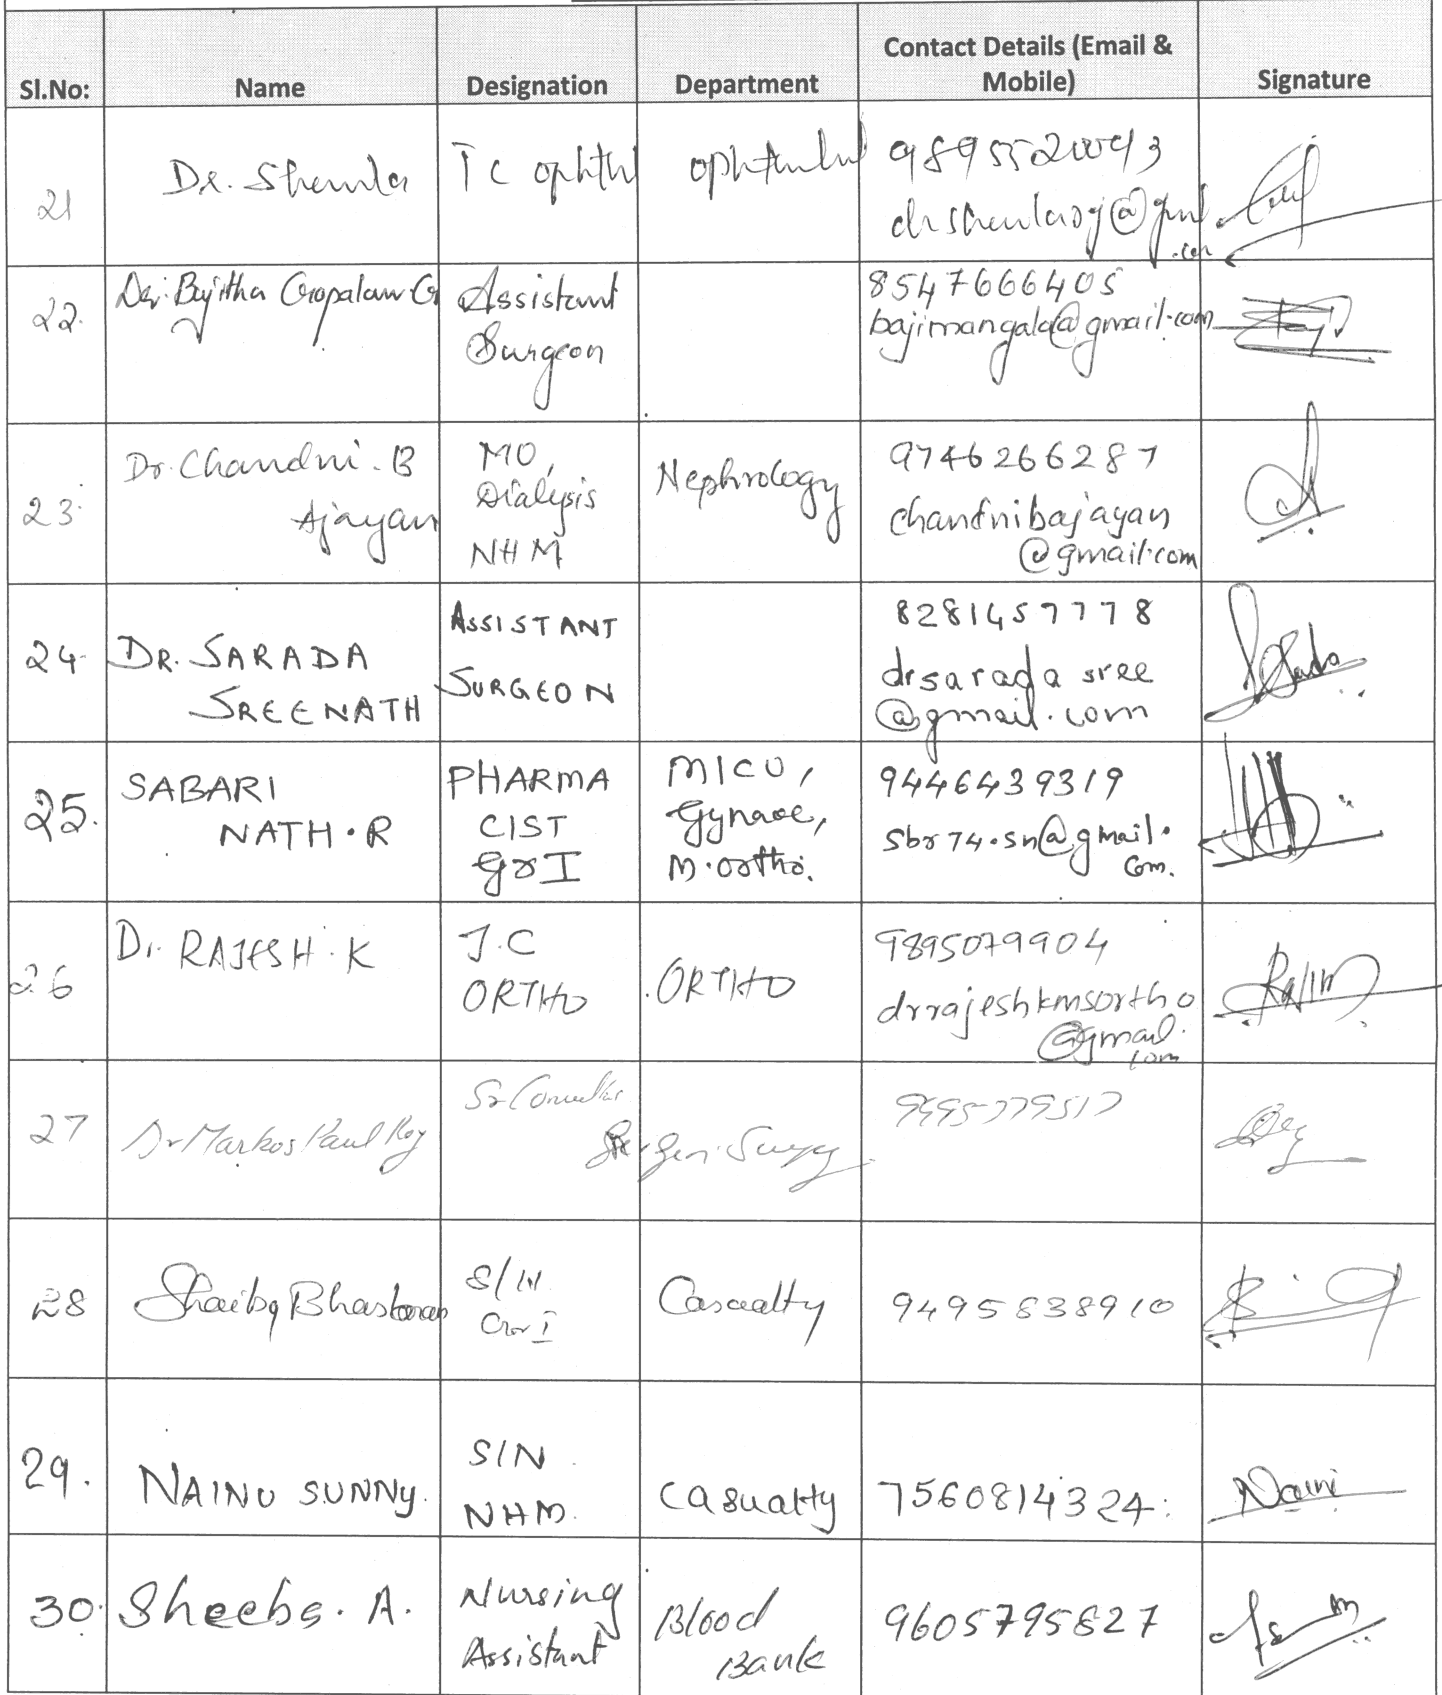 Sl.No: Name Designation Department Contact Details (Email & Mobile) Signature
21 Dr. Shemla JC ophthl ophthalml
@gml.com
22. Bajitha Gopalan G Assistant Surgeon 8547666405
bajimangala@gmail.com
23. Dr. Chandni. B Ajayan MO, Dialysis NHM Nephrology 9746266287
chandnibajayan
@gmail.com
24. DR. SARADA SREENATH ASSISTANT SURGEON 8281457778
drsarada sree
@gmail.com
25. SABARI NATH. R PHARMACIST Gr I MICU, Gynaec, M.ortho. 9446439319
sbr74.sn@gmail.
com.
26 Dr. RAJESH. K J.C ORTHO ORTHO 9895079904
drrajeshkmsortho
@gmail.
com
27 Dr Markos Paul Roy Sr Consultant Gen. Surgery
28 Shaiba Bhaskaran S/N Gr I Casualty 9495838910
29. NAINU SUNNY. S/N NHM. Casualty 7560814324.
30. Sheeba. A. Nursing Assistant Blood Bank 9605795827